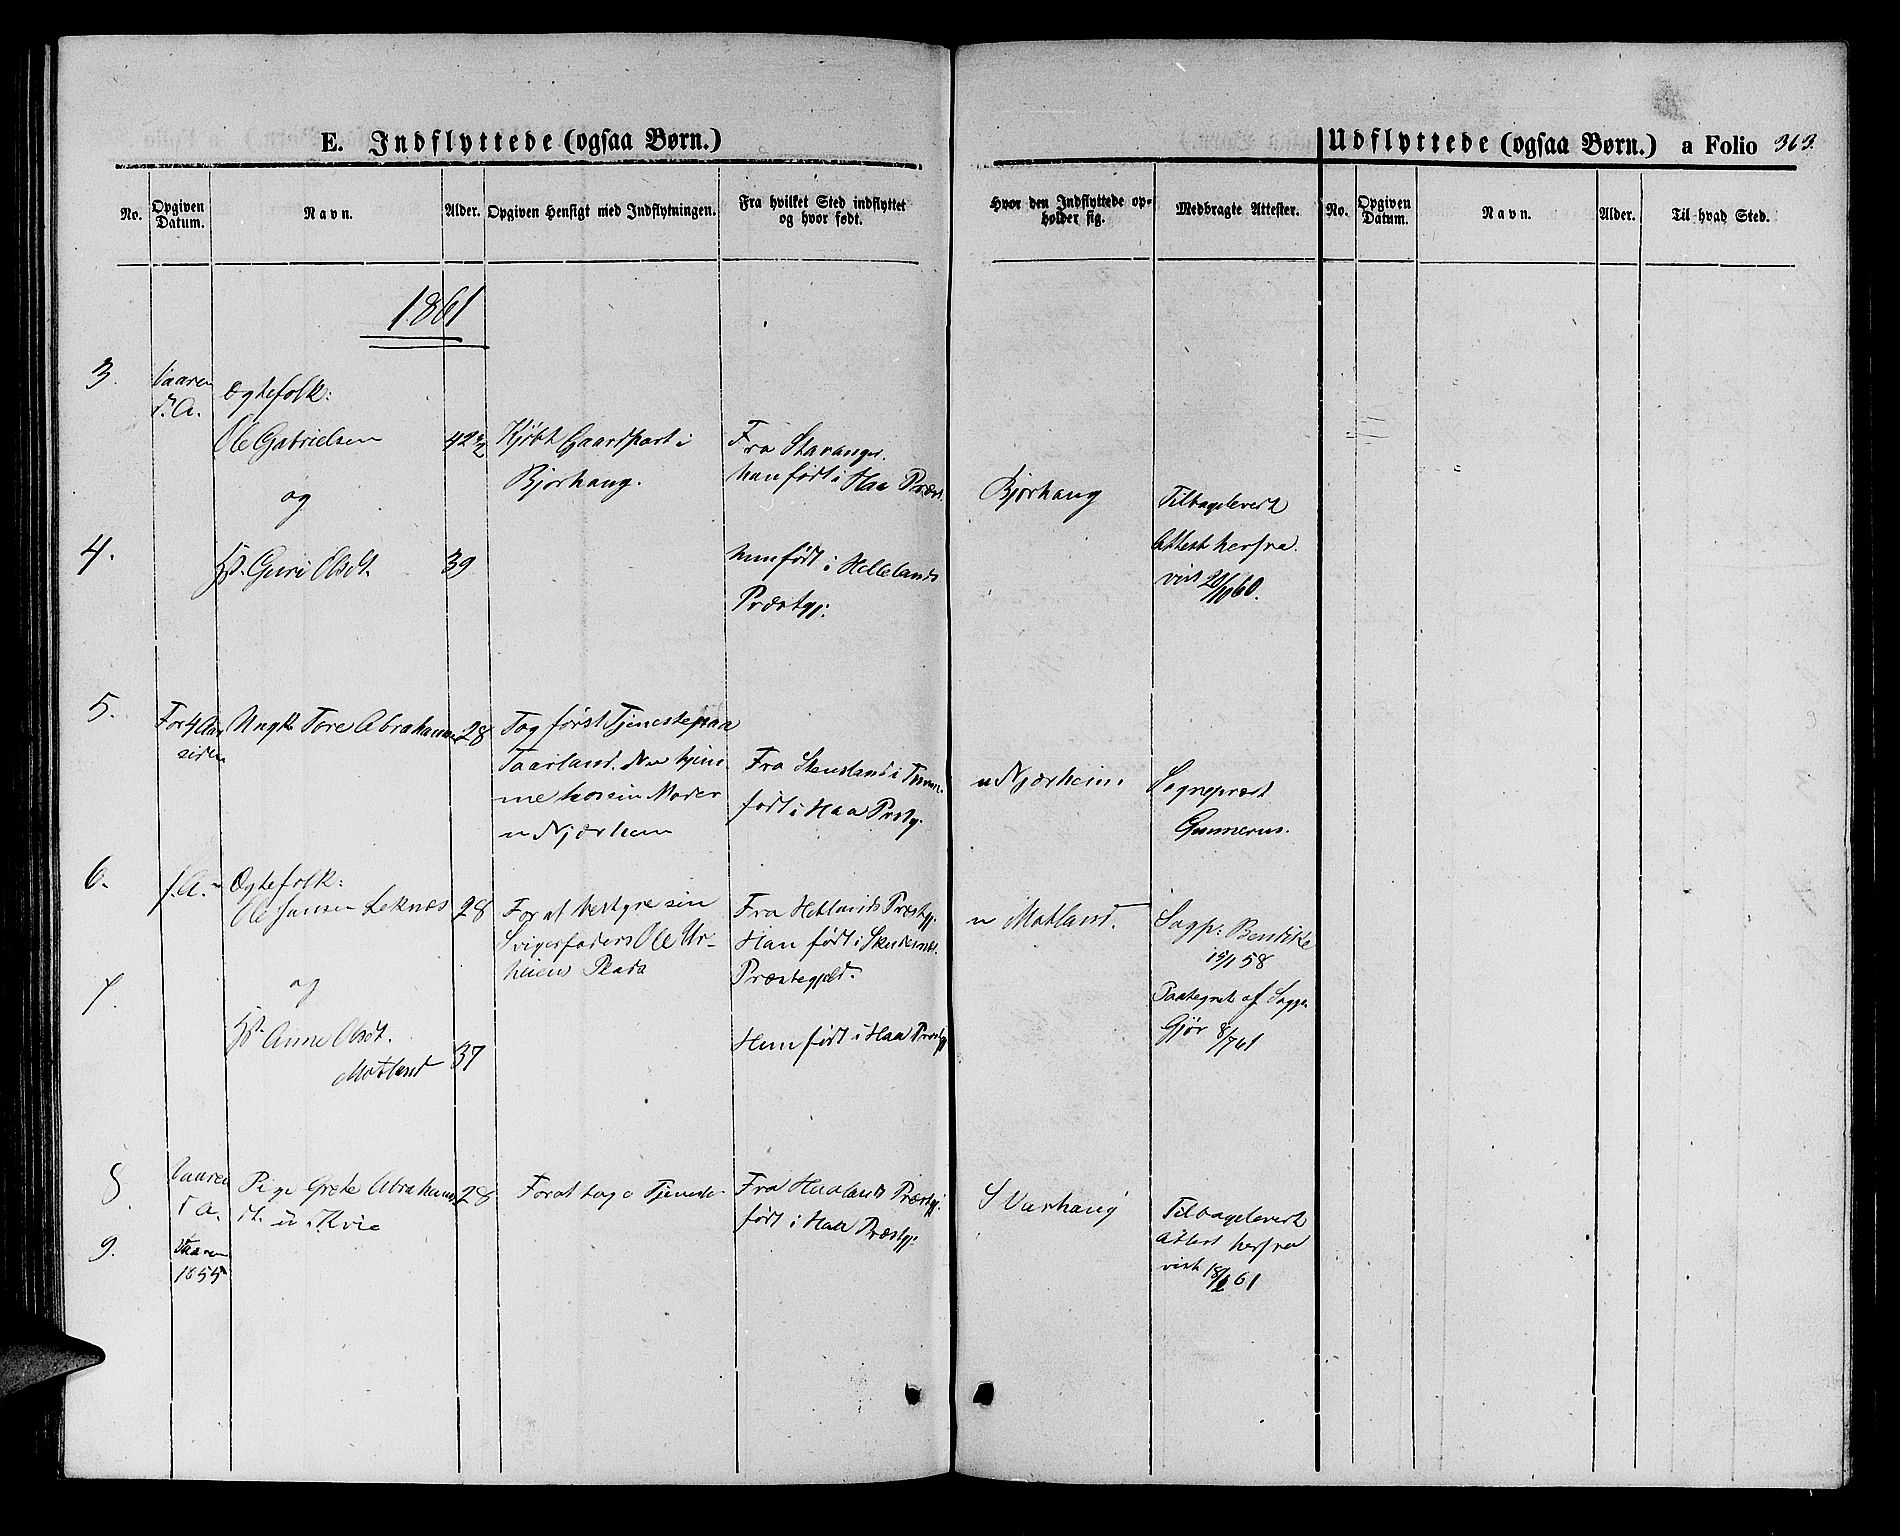 E. Indflyttede (ogsaa Børn.)
Udflyttede (ogsaa Børn.) a Folio 363.
No.
Opgiven Datum.
Navn.
Alder.
Opgiven Hensigt med Indflytningen.
Fra hvilket Sted indflyttet og hvor født.
Hvor den Indflyttede opholder sig.
Medbragte Attester.
No.
Opgiven Datum.
Navn.
Alder.
Til hvad Sted.
1861
3.
Vaaren
d. A.
Ægtefolk:
Ole Gabrielsen
42 1/2
Kjøbt Gaardpart i
Bjorhaug.
Fra Stavanger.
han født i Haa Præst.
og
Bjorhaug
Tilbagelevert
Attest herfra.
vist 20/10 60.
4.
Guri Olsdt.
39
hun født i Hellelands
Præstgj:
5.
For 4 Aar
siden
Ungk. Tore Abrahams.
28
Tog først Tjeneste paa
Taarland. Nu hjem-
me hos sin Moder
n Njærheim
Fra Skensland i
født i Haa Prstg.
n Njærheim
Sogneprest
Gunnerus.
6.
f. A.
Ægtefolk:
Ole Jansen Leknæs
28
For at bestyre sin
Svigerfaders Ole Ur-
heien Plads
Fra Hetlands Præstgj.
Han født i Skudesnæs
Præstegjeld.
n Motland.
Sogp: Bendike
15/1 58
Paategnet af Sogp.
Gjør 8/7 61
og
7.
Anne Olsdt.
Motland
37
Hun født i Haa Præstgj
8.
Vaaren
d A.
Pige Grete Abrahams
dt. ú. Kvie
28
For at tage Tjeneste
Fra Haalands Præstgj.
født i Haa Præstgj:
S Varhaug
Tilbagelevert
Attest herfra
vist 18/2 61
9.
Vaaren
1855